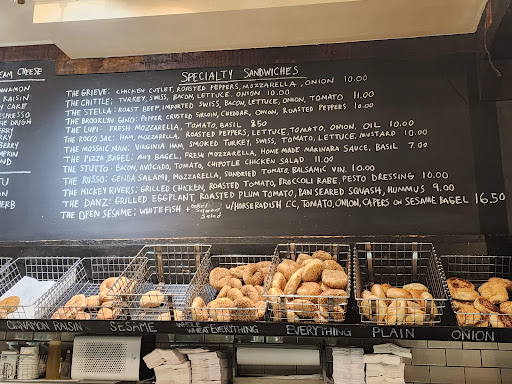 EAM CHEESE
CINNAMON
RAISIN
Y CAKE
ESPRESSO
IE DOUGH
ERRY
ERRY
MPKIN
OND
TU
N
HERB
SPECIALTY SANDWICHES
THE GRIEVE: CHICKEN CUTLET, ROASTED PEPPERS, MOZZARELLA, ONION 10.00
THE CHITTLE: TURKEY, SWISS, BACON, LETTUCE, ONION 10.00
THE STELLA: ROAST BEEF, IMPORTED SWISS, BACON, LETTUCE, ONION, TOMATO 11.00
THE BROOKLYN GINO: PEPPER CRUSTED SIRLOIN, CHEDDAR, ONION, ROASTED PEPPERS 10.00
THE LUPI: FRESH MOZZARELLA, TOMATO, BASIL 8.50
THE ROCCO SAC: HAM, MOZZARELLA, ROASTED PEPPERS, LETTUCE, TOMATO, ONION, OIL 10.00
THE MOSAIC MAN: VIRGINIA HAM, SMOKED TURKEY, SWISS, TOMATO, LETTUCE, MUSTARD 10.00
THE PIZZA BAGEL: ANY BAGEL, FRESH MOZZARELLA, HOME MADE MARINARA SAUCE, BASIL 7.00
THE STUTTO: BACON, AVOCADO, TOMATO, CHIPOTLE CHICKEN SALAD 11.00
THE RUSSO: GENOA SALAMI, MOZZARELLA, SUNDRIED TOMATO, BALSAMIC VIN. 10.00
THE MICKEY RIVERS: GRILLED CHICKEN, ROASTED TOMATO, BROCCOLI RABE, PESTO DRESSING 10.00
THE DANZ: GRILLED EGGPLANT, ROASTED PLUM TOMATO, PAN SEARED SQUASH, HUMMUS 9.00
THE OPEN SESAME: WHITEFISH + BAKED SALMON SALAD W/HORSERADISH CC, TOMATO, ONION, CAPERS ON SESAME BAGEL 16.50
CINNAMON RAISIN
SESAME
WHOLE WHEAT EVERYTHING
EVERYTHING
PLAIN
ONION